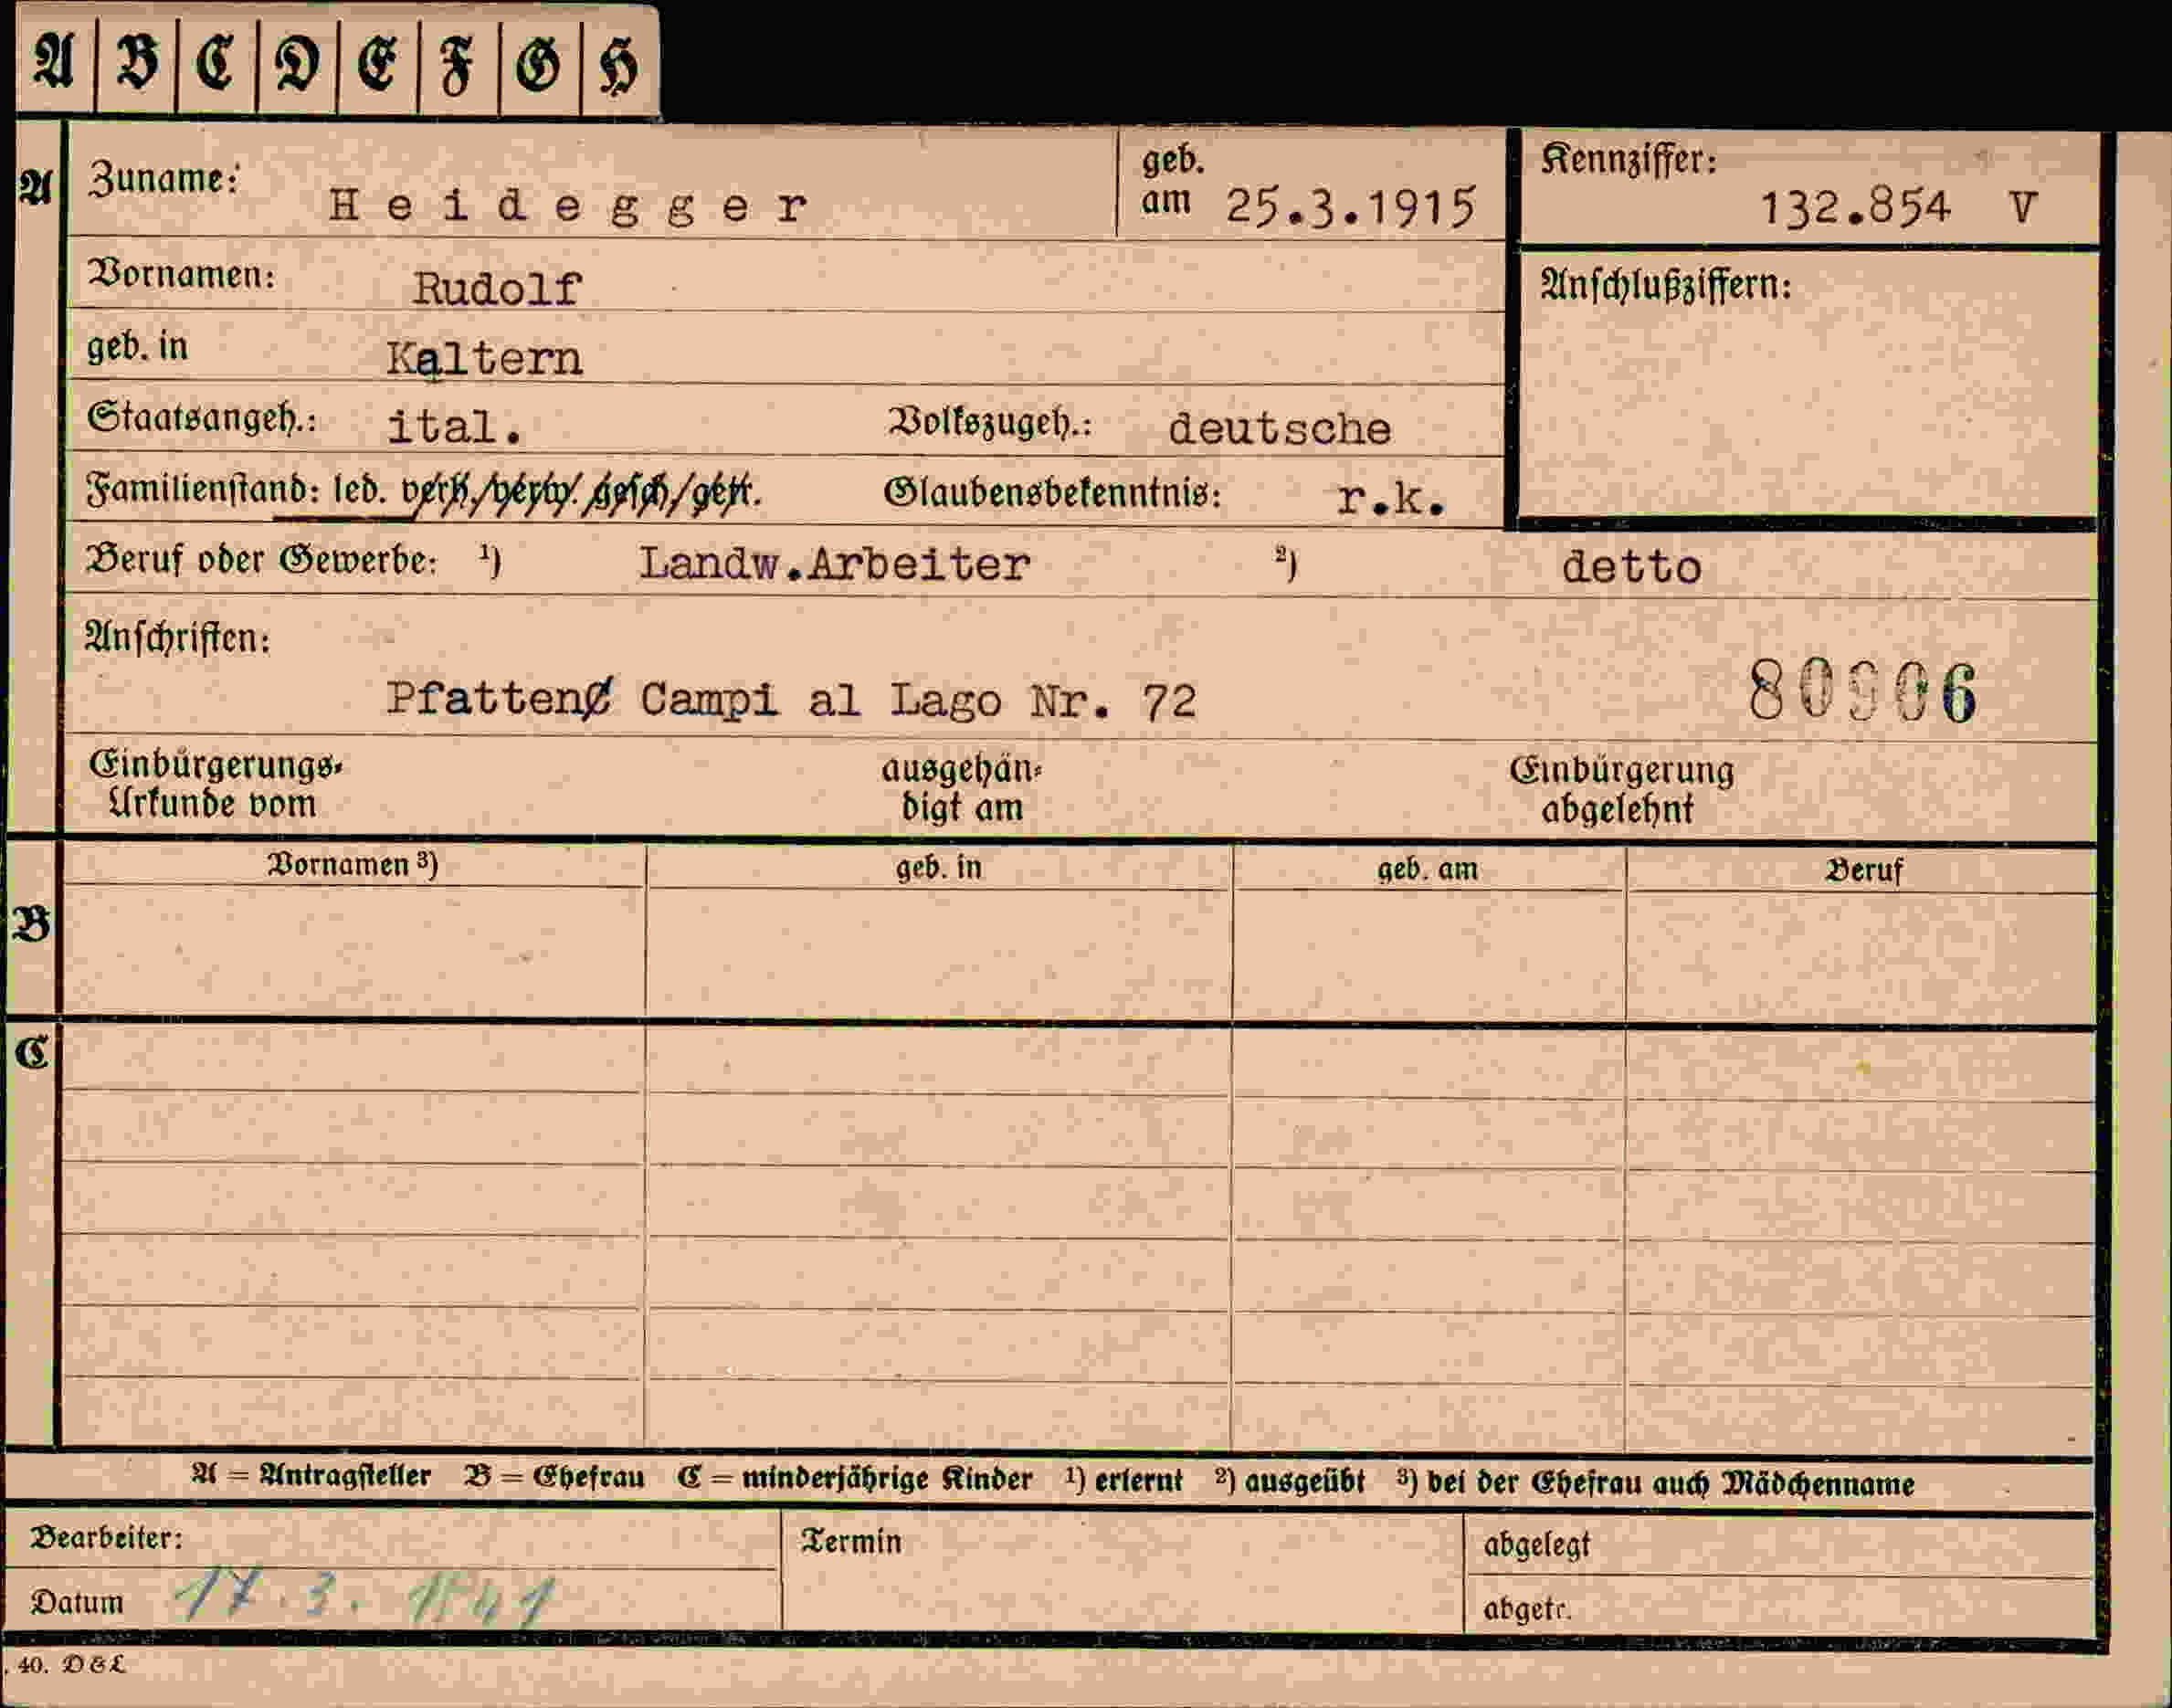 A B C D E F G H
A Zuname: Heidegger geb. am 25.3.1915 Kennziffer: 132.854 V
Vornamen: Rudolf Anschlußziffern:
geb. in Kaltern
Staatsangeh.: ital. Volkszugeh.: deutsche
Familienstand: led. verh. verw. gesch. getr. Glaubensbekenntnis: r.k.
Beruf oder Gewerbe: ¹) Landw.Arbeiter ²) detto
Anschriften:
Pfatten Campi al Lago Nr. 72 80906
Einbürgerungs- ausgehän- Einbürgerung
Urkunde vom digt am abgelehnt
Vornamen ³) geb. in geb. am Beruf
B
C
A = Antragsteller B = Ehefrau C = minderjährige Kinder ¹) erlernt ²) ausgeübt ³) bei der Ehefrau auch Mädchenname
Bearbeiter: Termin abgelegt
Datum 17.3. 1941 abgetr.
. 40. D&L